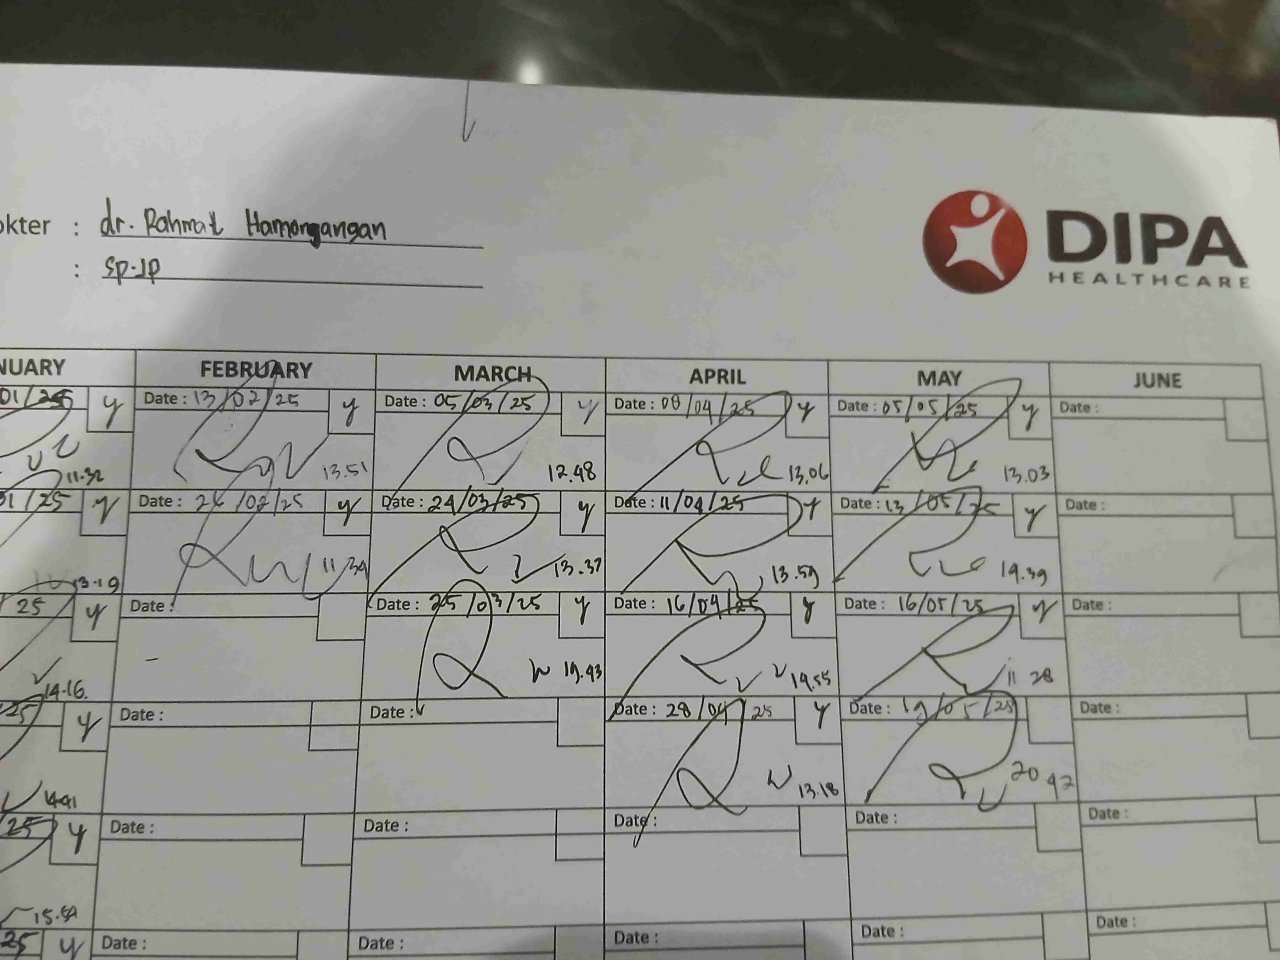 okter : dr. Rahmat Hamongangan
: sp.JP
DIPA
HEALTHCARE
NUARY FEBRUARY MARCH APRIL MAY JUNE
01/25 y Date : 13/02/25 y Date : 05/03/25 y Date : 08/04/25 y Date : 05/05/25 y Date :
11.32 13.51 12.48 13.06 13.03
01/25 y Date : 26/02/25 y Date : 24/03/25 y Date : 11/04/25 y Date : 13/05/25 y Date :
13.19 11.39 13.37 13.59 14.39
25 y Date : Date : 25/03/25 y Date : 16/04/25 y Date : 16/05/25 y Date :
14.16. 19.43 14.55 11 28
25 y Date : Date : Date : 28/04/25 y Date : 19/05/25 Date :
14.41 13.18 20 42
25 y Date : Date : Date : Date : Date :
15.59
25 y Date : Date : Date : Date : Date :